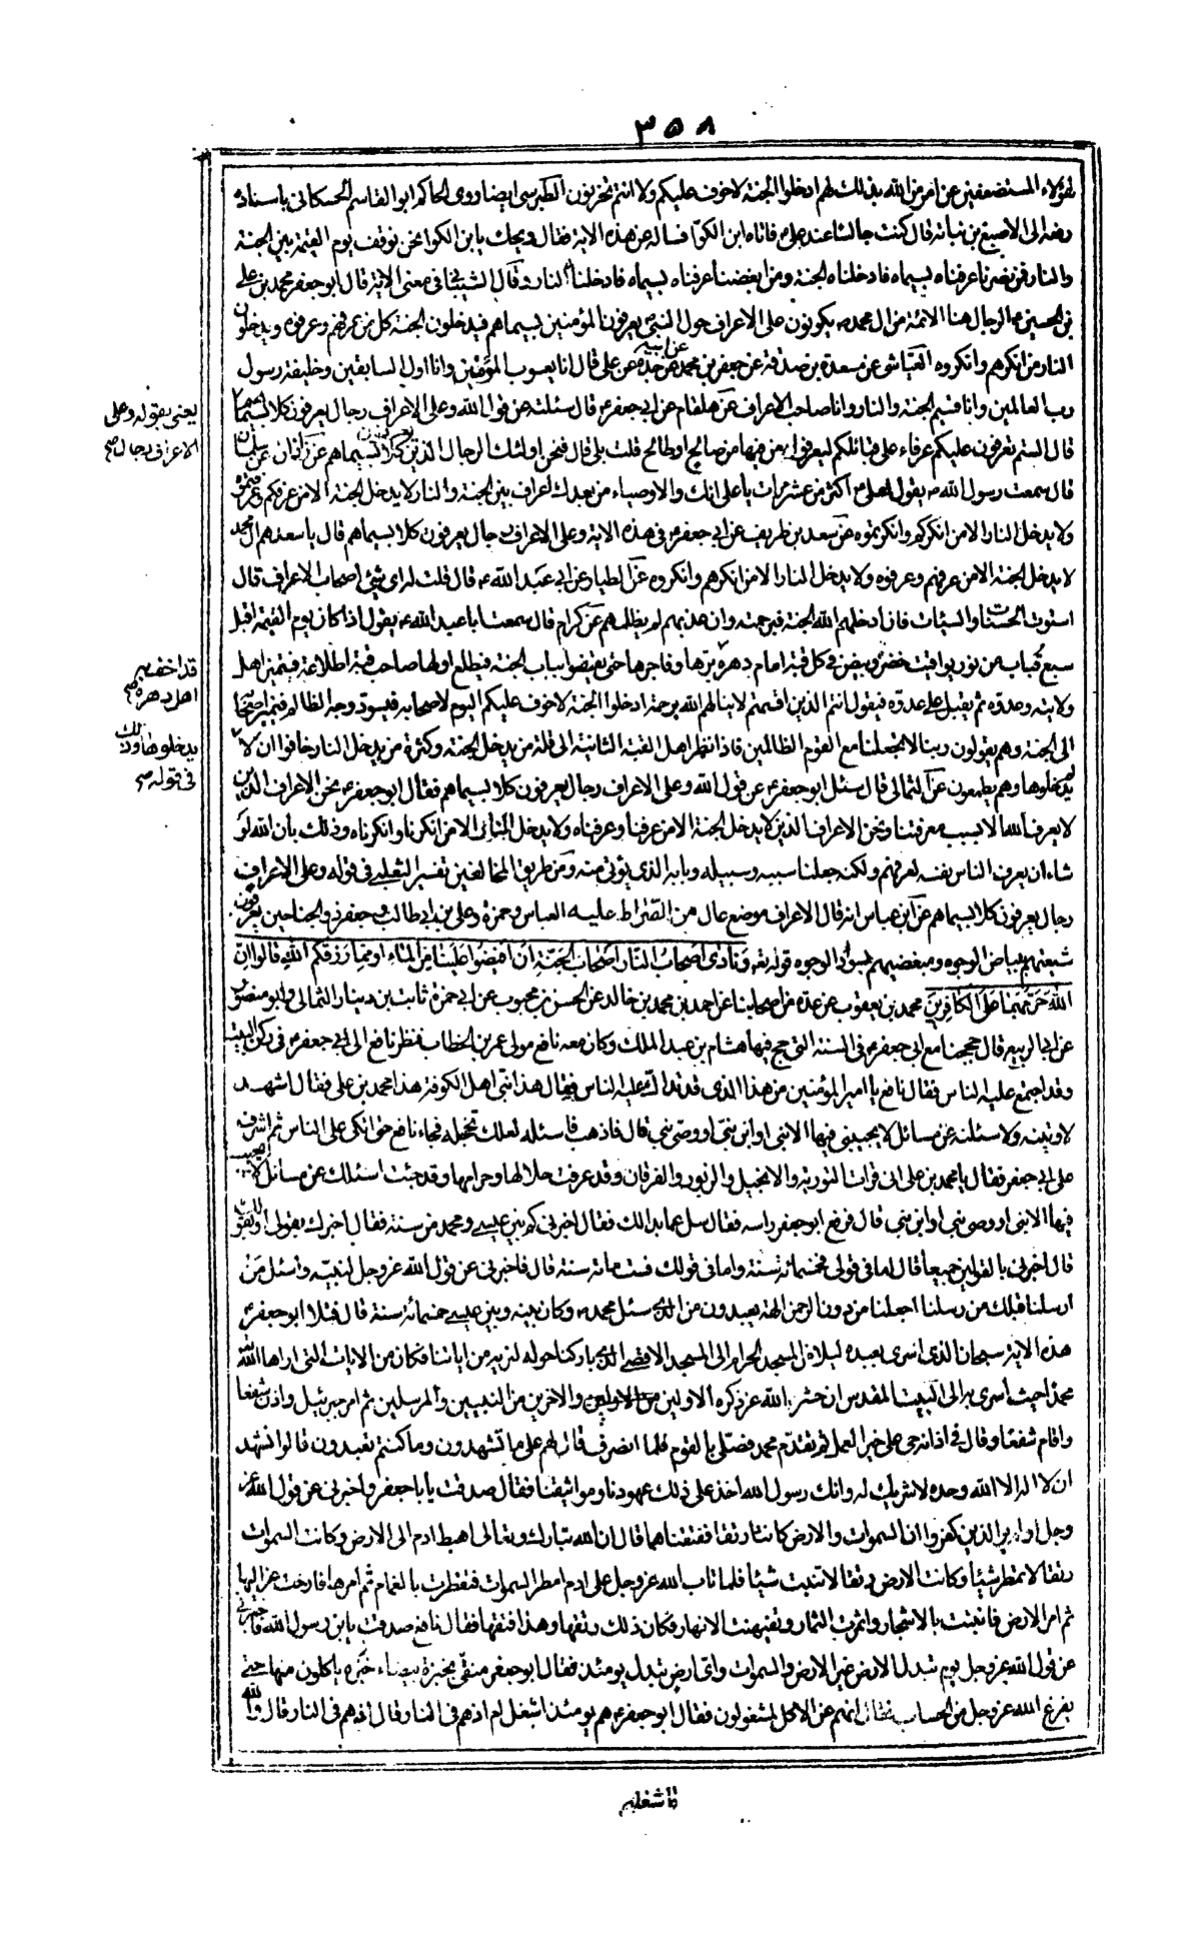 ٣٥٨
لهؤلاء المستضعفين عن امر من الله بذلك لهم ادخلوا الجنة لا خوف عليكم ولا انتم تحزنون الطبرسى ايضا روى الحاكم ابو القاسم الحسكانى باسناده
رفعه الى الاصبغ بن نباته قال كنت جالسا عند على ع فاتاه ابن الكوا فساله عن هذه الاية فقال ويحك يا بن الكوا نحن نوقف يوم القيمة بين الجنة
والنار فمن نصرنا عرفناه بسيماه فادخلناه الجنة ومن ابغضنا عرفناه بسيماه فادخلناه النار وقال الشيبانى فى معنى الاية قال ابو جعفر محمد بن على
بن الحسين ع الرجال هنا الائمة من ال محمد ص يكونون على الاعراف حول النبى ص يعرفون المؤمنين بسيماهم فيدخلون الجنة كل من عرفهم وعرفوه ويدخلون
النار من انكرهم وانكروه العياشى عن مسعدة بن صدقة عن جعفر بن محمد عن ابيه عن جده عن على قال انا يعسوب المؤمنين وانا اول السابقين وخليفة رسول
رب العالمين وانا قسيم الجنة والنار وانا صاحب الاعراف عن هلقام عن ابى جعفر ع قال سئلته عن قول الله وعلى الاعراف رجال يعرفون كلا بسيماهم
يعنى بقوله وعلى
الاعراف رجال صح
قال الستم تعرفون عليكم عرفاء على قبائلكم ليعرفوا من فيها من صالح او طالح قلت بلى قال فنحن اولئك الرجال الذين يعرفون كلا بسيماهم عن زاذان عن سلمان
قال سمعت رسول الله ص يقول لعلى ع اكثر من عشر مرات يا على انك والاوصياء من بعدك اعراف بين الجنة والنار لا يدخل الجنة الا من عرفكم وعرفتموه
ولا يدخل النار الا من انكركم وانكرتموه عن سعد بن طريف عن ابى جعفر ع فى هذه الاية وعلى الاعراف رجال يعرفون كلا بسيماهم قال يا سعد هم ال محمد
لا يدخل الجنة الا من عرفهم وعرفوه ولا يدخل النار الا من انكرهم وانكروه عن الطيار عن ابى عبد الله ع قال قلت له اى شئ اصحاب الاعراف قال
استوت الحسنات والسيئات فان ادخلهم الله الجنة فبرحمته وان عذبهم لم يظلمهم عن كرام قال سمعت ابا عبد الله ع يقول اذا كان يوم القيمة اقبل
سبع قباب من نور يواقيت خضر وبيض فى كل قبة امام دهره برها وفاجرها حتى يقفوا بباب الجنة فيطلع اولها صاحب قبة اطلاعة فيتميز اهل
اهل دهره صح
ولايته وعدوه ثم يقبل على عدوه فيقول انتم الذين اقسمتم لا ينالهم الله برحمة ادخلوا الجنة لا خوف عليكم اليوم لاصحابه فيسود وجه الظالم فيميز اصحابه
الى الجنة وهم يقولون ربنا لا تجعلنا مع القوم الظالمين فاذا نظر اهل القبة الثانية الى قلة من يدخل الجنة وكثرة من يدخل النار خافوا ان لا
يدخلوها وذلك
فى قوله صح
يدخلوها وهم يطمعون عن الثمالى قال سئل ابو جعفر ع عن قول الله وعلى الاعراف رجال يعرفون كلا بسيماهم فقال ابو جعفر ع نحن الاعراف الذين
لا يعرف الله الا بسبب معرفتنا ونحن الاعراف الذين لا يدخل الجنة الا من عرفنا وعرفناه ولا يدخل النار الا من انكرنا وانكرناه وذلك بان الله لو
شاء ان يعرف الناس نفسه لعرفهم ولكنه جعلنا سببه وسبيله وبابه الذى يؤتى منه ومن طريق المخالفين تفسير الثعلبى فى قوله وعلى الاعراف
رجال يعرفون كلا بسيماهم عن ابن عباس انه قال الاعراف موضع عال من الصراط عليه العباس وحمزة وعلى بن ابى طالب وجعفر ذو الجناحين يعرفون
شيعتهم ببياض الوجوه ومبغضيهم بسواد الوجوه قوله تع وَنَادى اَصْحَابُ النّارِ اَصْحَابَ الجَنّةِ اَنْ اَفِيضُوا عَلَيْنَا مِنَ المَاءِ اَوْ مِمّا رَزَقَكُمُ اللهُ قَالُوا اِنّ
اللهَ حَرّمَهُمَا عَلَى الكَافِرِينَ محمد بن يعقوب عن عدة من اصحابنا عن احمد بن محمد بن خالد عن الحسن بن محبوب عن ابى حمزة ثابت بن دينار الثمالى وابو منصور
عن ابى الربيع قال حججنا مع ابى جعفر ع فى السنة التى حج فيها هشام بن عبد الملك وكان معه نافع مولى عمر بن الخطاب فنظر نافع الى ابى جعفر ع فى ركن البيت
وقد اجتمع عليه الناس فقال نافع يا امير المؤمنين من هذا الذى قد تداك عليه الناس فقال هذا نبى اهل الكوفة هذا محمد بن على فقال اشهد
لاتينه ولاسئلنه عن مسائل لا يجيبنى فيها الا نبى او ابن نبى او وصى نبى قال فاذهب فاسئله لعلك تخجله فجاء نافع حتى اتكى على الناس ثم اشرف
على ابى جعفر فقال يا محمد بن على انى قرات التورية والانجيل والزبور والفرقان وقد عرفت حلالها وحرامها وقد جئت اسئلك عن مسائل لا يجيب
فيها الا نبى او وصى نبى او ابن نبى قال فرفع ابو جعفر راسه فقال سل عما بدا لك فقال اخبرنى كم بين عيسى ومحمد من سنة فقال اخبرك بقولى او بقولك
قال اخبرنى بالقولين جميعا قال اما فى قولى فخمسمائة سنة واما فى قولك فستمائة سنة قال فاخبرنى عن قول الله عز وجل لنبيه واسئل من
ارسلنا قبلك من رسلنا اجعلنا من دون الرحمن الهة يعبدون من الذى سئل محمد ص وكان بينه وبين عيسى خمسمائة سنة قال فتلا ابو جعفر ع
هذه الاية سبحان الذى اسرى بعبده ليلا من المسجد الحرام الى المسجد الاقصى الذى باركنا حوله لنريه من اياتنا فكان من الايات التى اراها الله
محمدا حيث اسرى به الى البيت المقدس ان حشر الله عز ذكره الاولين والاخرين من النبيين والمرسلين ثم امر جبرئيل واذن شفعا
واقام شفعا وقال فى اذانه حى على خير العمل ثم تقدم محمد فصلى بالقوم فلما انصرف قال لهم على ما تشهدون وما كنتم تعبدون قالوا نشهد
ان لا اله الا الله وحده لا شريك له وانك رسول الله اخذ على ذلك عهودنا ومواثيقنا فقال صدقت يا با جعفر واخبرنى عن قول الله عز
وجل اولم ير الذين كفروا ان السموات والارض كانتا رتقا ففتقناهما قال ان الله تبارك وتعالى اهبط ادم الى الارض وكانت السموات
رتقا لا تمطر شيئا وكانت الارض رتقا لا تنبت شيئا فلما تاب الله عز وجل على ادم امطر السموات فتفطرت بالغمام ثم امرها فارخت عزاليها
ثم امر الارض فانبتت بالاشجار واثمرت الثمار وتفيهنت الانهار فكان ذلك رتقها وهذا فتقها فقال نافع صدقت يا بن رسول الله فاخبرنى
عن قول الله عز وجل يوم تبدل الارض غير الارض والسموات واى ارض تبدل يومئذ فقال ابو جعفر ع تبقى بخبزة بيضاء خبزه ياكلون منها حتى
يفرغ الله عز وجل من الحساب فقال انهم عن الاكل لمشغولون فقال ابو جعفر ع هم يومئذ اشغل ام اذ هم فى النار قال اذ هم فى النار قال والله
ما شغلهم